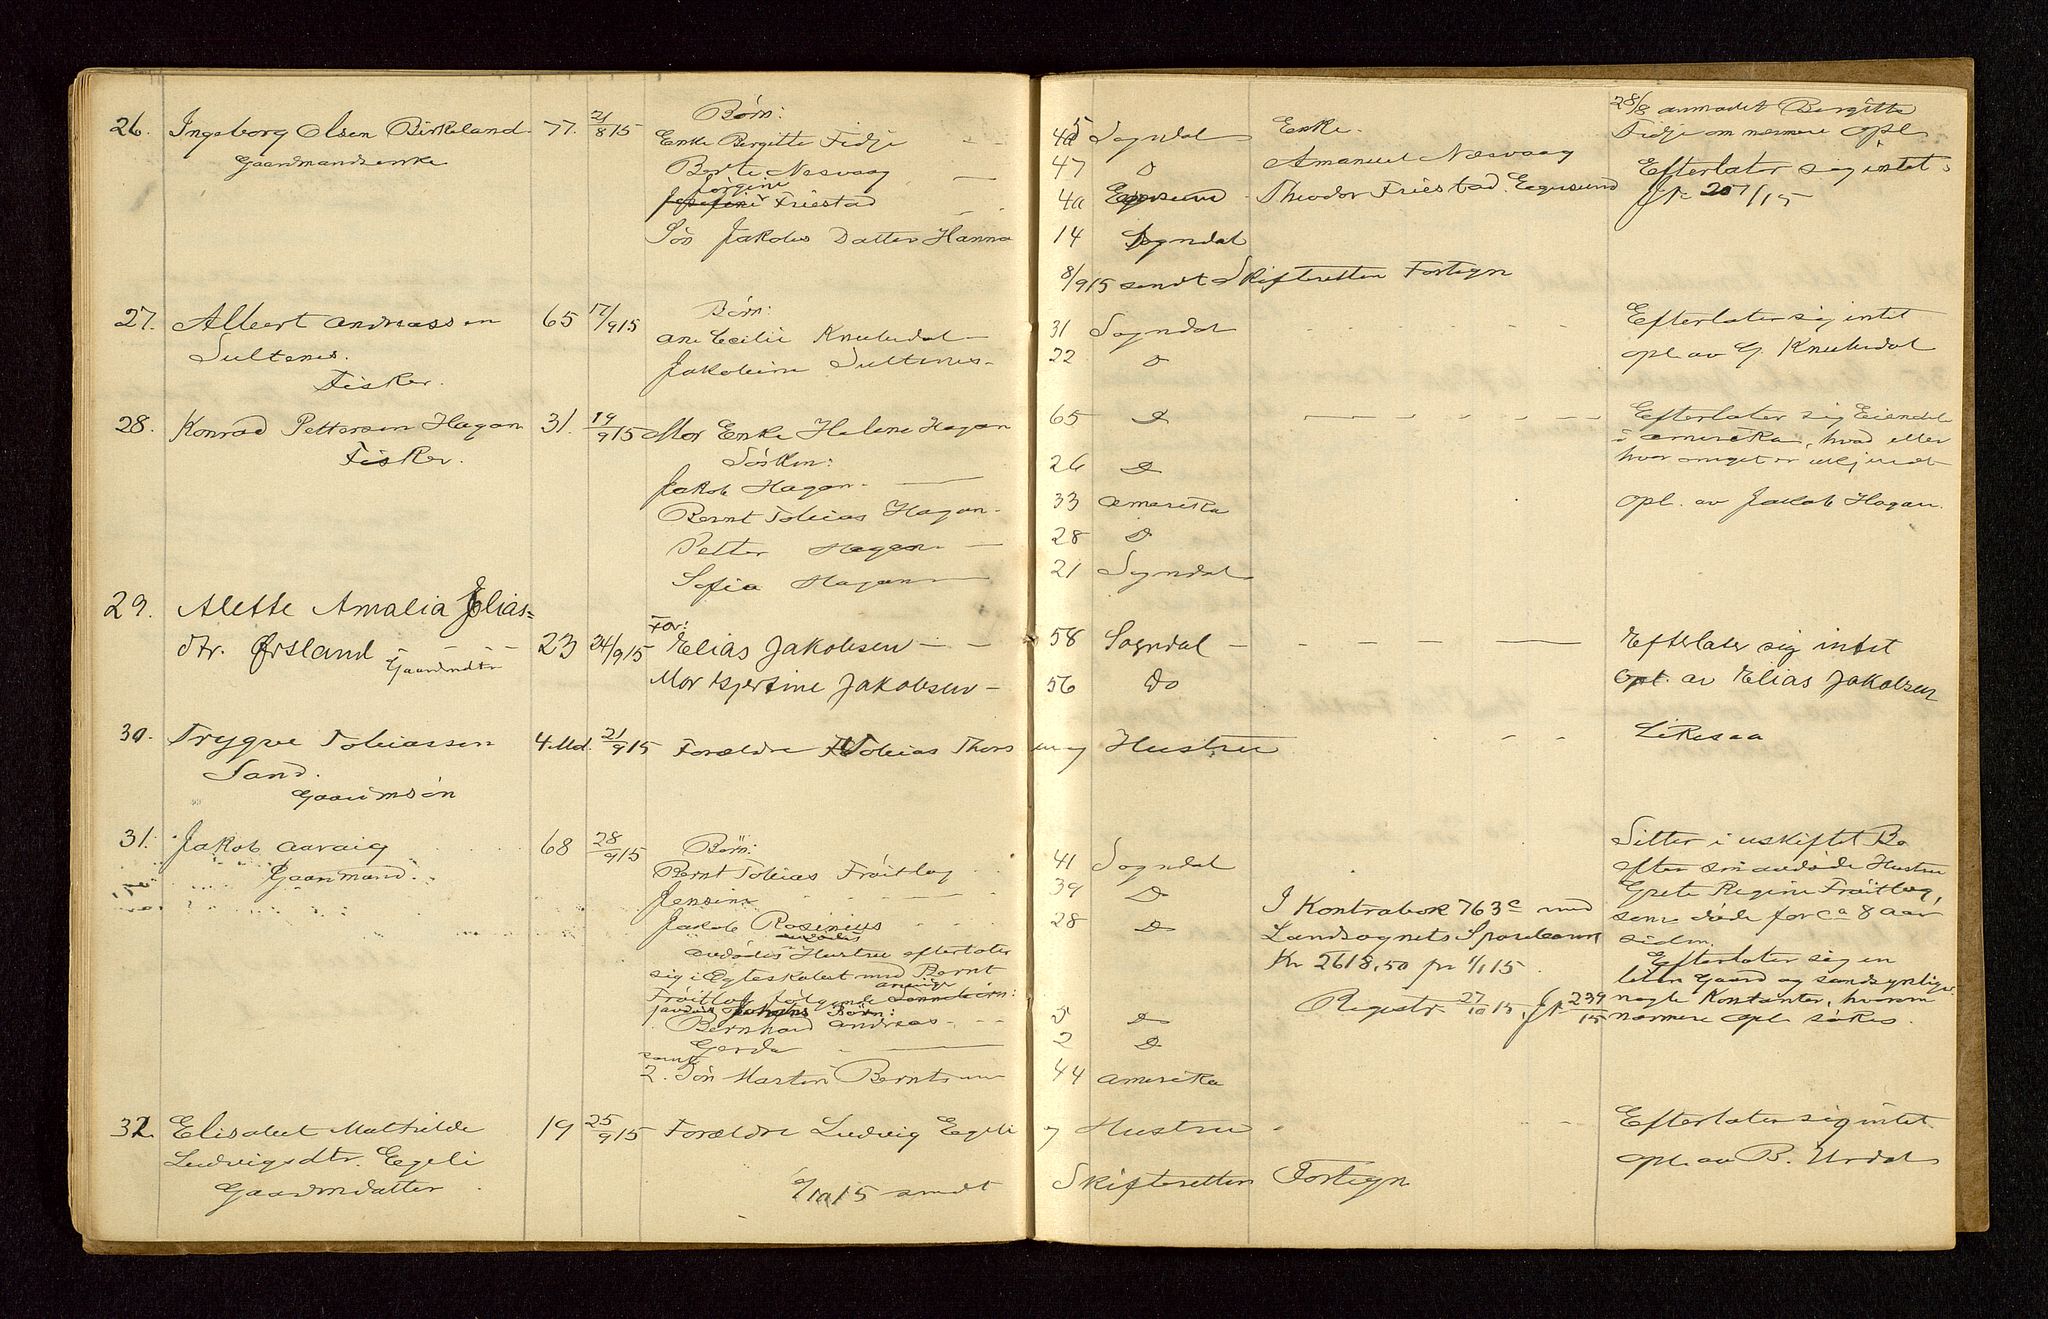 26. Ingeborg Olsen Birkeland 77. 21/8 15 Børn:
Gaardmandsenke
Enke Bergitte Fidje
Berte Næsvaag
Jørgine
Friestad
Søn Jakob Datter Hanna
Sogndal Enke.
47 D Amanuel Næsvaag
40 Egersund Theodor Friestad. Egersund
14 Sogndal
8/9 15 sendt Skifteretten Fortegn
28/8 anmodet Bergitte
Fidje om nærmere opl.
Efterlater sig intet.
Jr 207/15
27. Albert Andreassen 65 17/9 15 Børn:
Sultenes.
Fisker.
Ane Cecilie Knubedal
Jakobine Sultenes
31 Sogndal
22 D
Efterlater sig intet
opl. av G. Knubedal
28. Konrad Pettersen Hagan 31. 19/9 15 Mor Enke Helene Hagan
Fisker.
Søsken:
Jakob Hagan
Bernt Tobias Hagan
Petter Hagan
Sofia Hagan
65 D
26 D
33 Amerika
28 D
21 Sogndal
Efterlater sig Eiendel
i Amerika, hvad eller
hvor meget er ukjendt
opl. av Jakob Hagan.
29. Alette Amalia Elias=
dtr. Ørsland 23 24/9 15 Far: Elias Jakobsen
Gaardmdtr
Mor Kjertine Jakobsen
58 Sogndal
56 Do
Efterlater sig intet
Opl. av Elias Jakobsen
30. Trygve Tobiassen 4. Md. 21/9 15 Forældre Tobias Thorsen og Hustru
Sand.
Gaardmsøn
Likesaa
31. Jakob Aavaig 68 28/9 15 Børn:
Gaardmand.
Bernt Tobias Frøitlog
Jensine
Jakob Rosinius
avdødes
avdødes Hustru efterlater
sig i Egteskabet med Bernt
Frøitlog følgende
Børn:
Bernhard Andreas
Gerda
samt
2. Søn Martin Berntsen
41 Sogndal
39 D
28 D
5 D
2 D
44 Amerika
I Kontrabok 763c med
Landsognets Sparebank
Kr 2618,50 pr 1/1 15.
Registr 27/10 15, Jr 239/15
Sitter i uskiftet Bo
efter sin avdøde Hustru
Grete Regine Frøitlog,
som døde for ca 8 aar
siden.
Efterlater sig en
liten Gaard og sandsynligv.
nogle Kontanter, hvorom
nærmere opl. søkes.
32. Elisabet Mathilde 19 25/9 15 Forældre Ludvig Egeli og Hustru
Ludvigsdtr. Egeli
Gaardmdatter
Efterlater sig intet
opl. av B. Urdal
6/10 15 sendt Skifteretten Fortegn